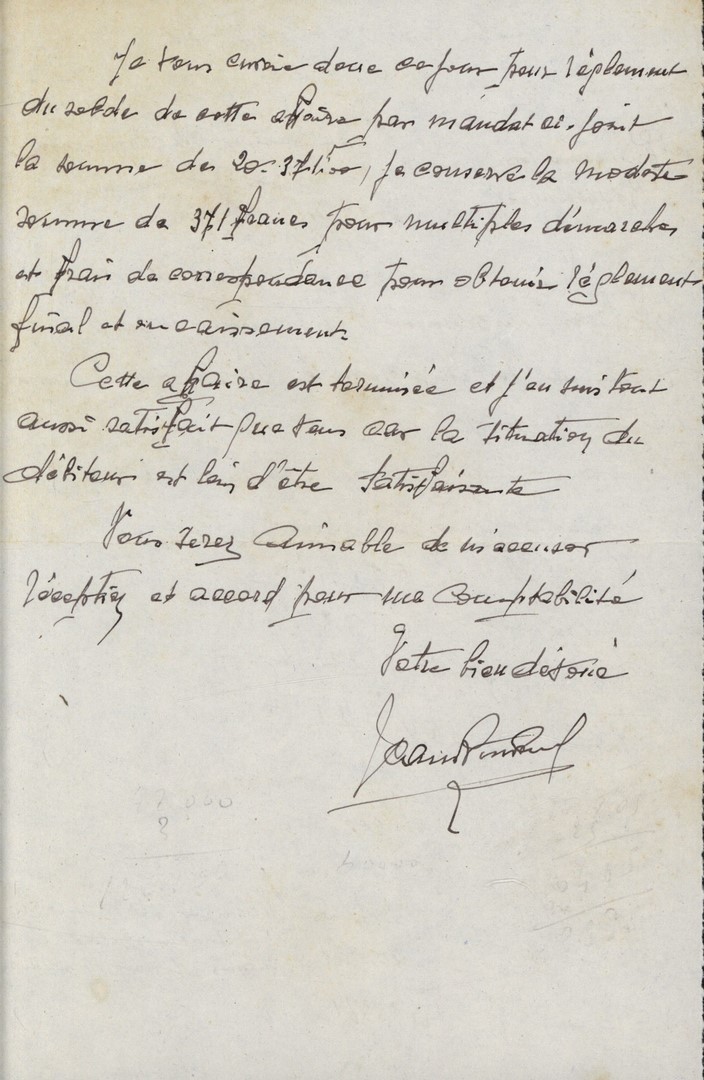 Je vous envoie donc ce jour pour règlement
du solde de cette affaire par mandat ci-joint
la somme de 20.371f00, je conserve la modeste
somme de 371 francs pour multiples démarches
et frais de correspondance pour obtenir règlement
final et encaissement.
Cette affaire est terminée et j'en suis tout
aussi satisfait que vous car la situation du
débiteur est loin d'être satisfaisante
Vous serez aimable de m'accuser
réception et accord pour ma comptabilité
Votre bien dévoué